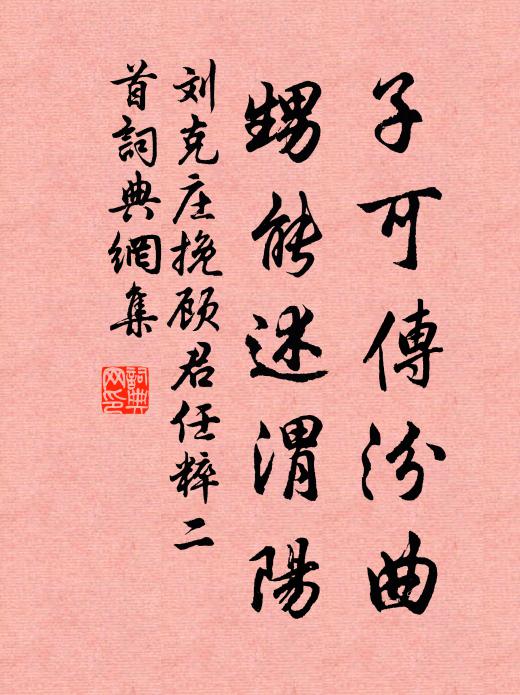 子可傳汾曲
甥能述渭陽
刘克庄挽顾君任粹二
首詞典網集
詞典網印